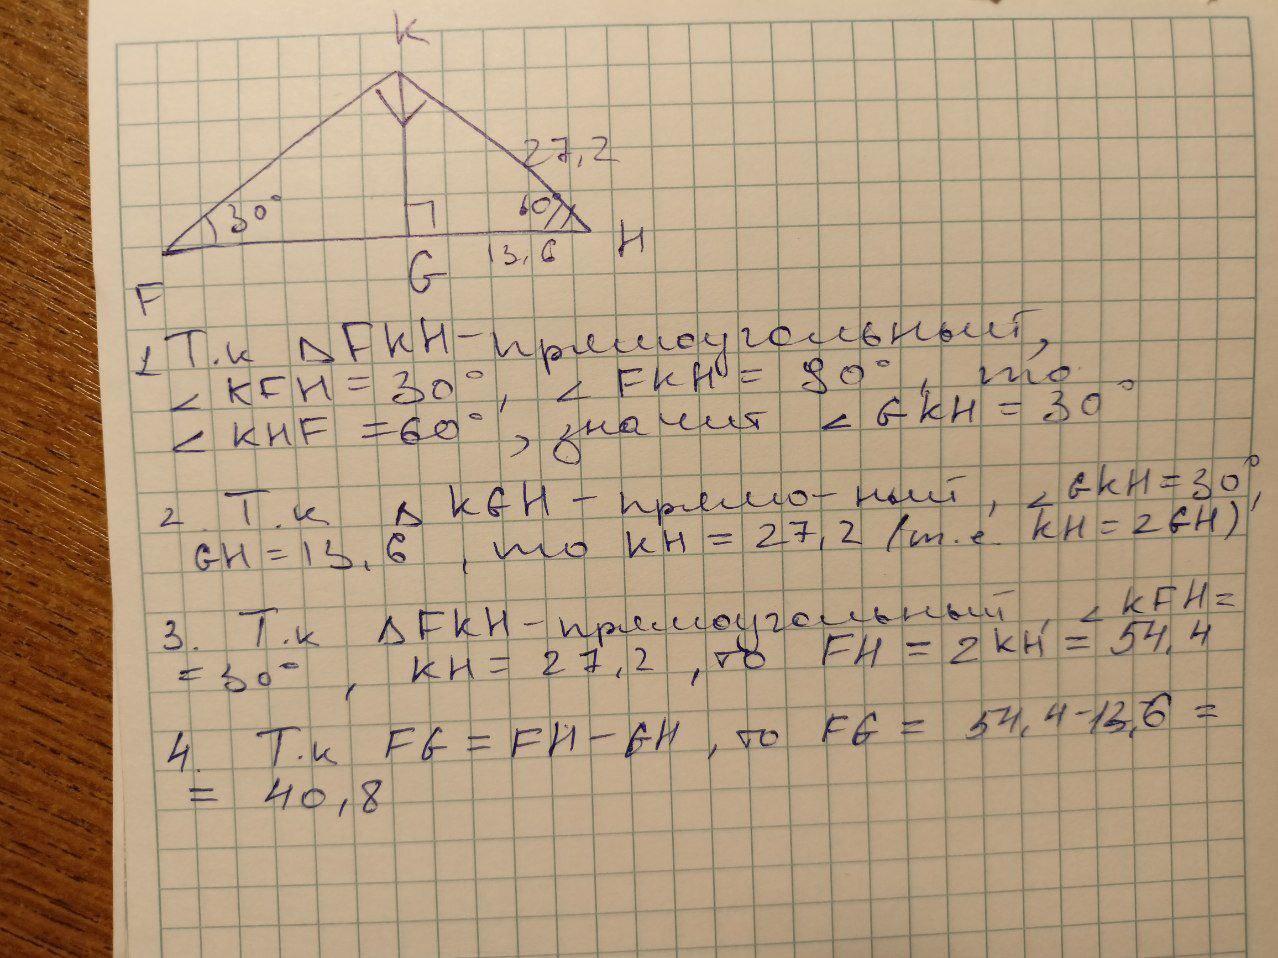 K
27,2
30°
60°
13,6
H
G
F
1 Т.к △FKH - прямоугольный,
∠ KFH = 30°, ∠ FKH = 90°, то
∠ KHF = 60°, значит ∠ GKH = 30°
2. Т.к △ KGH - прямо-ный, ∠ GKH = 30°,
GH = 13,6, то KH = 27,2 (т.е KH = 2GH)
3. Т.к △FKH - прямоугольный, ∠ KFH =
= 30°, KH = 27,2, то FH = 2KH = 54,4
4. Т.к FG = FH - GH, то FG = 54,4-13,6 =
= 40,8